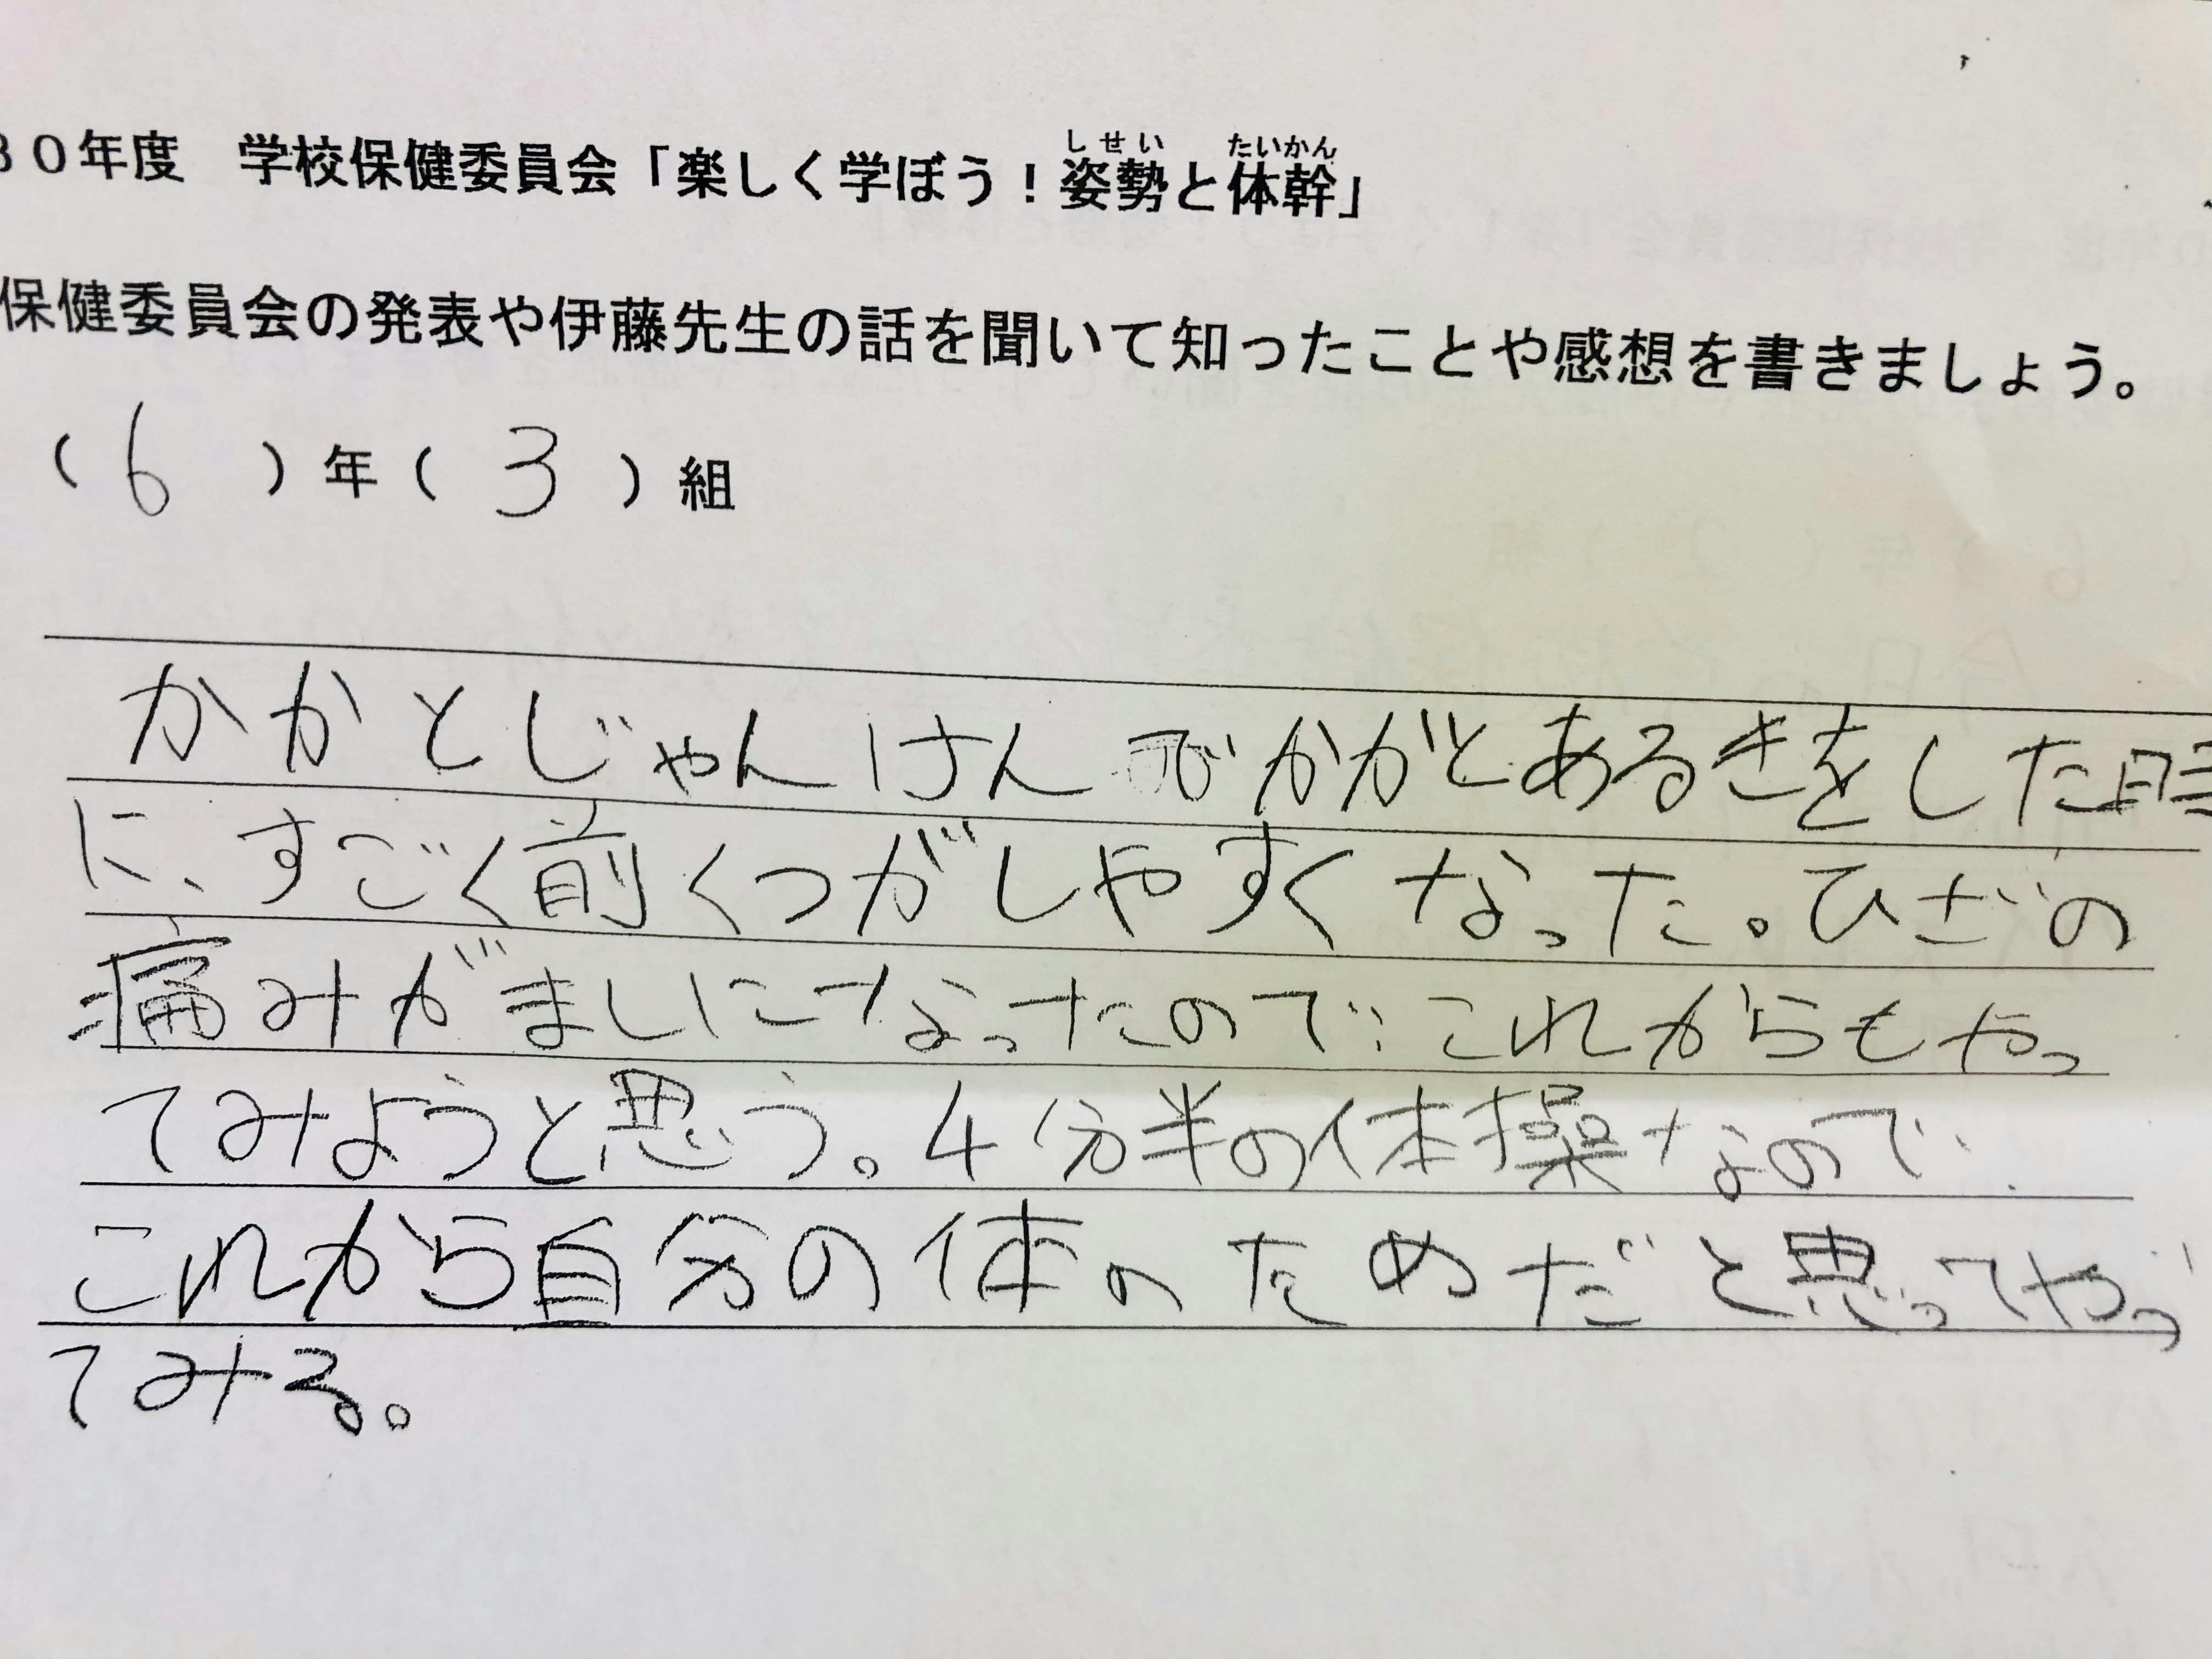 30年度 学校保健委員会「楽しく学ぼう！姿勢と体幹」
しせい たいかん
保健委員会の発表や伊藤先生の話を聞いて知ったことや感想を書きましょう。
（6）年（3）組
かかとじゃんけんでかがとあるきをした時
に、すごく前くつがしやすくなった。ひざの
痛みがましになったので、これからもやっ
てみようと思う。4分半の体操なので、
これから自分の体のためだと思ってやっ
てみる。